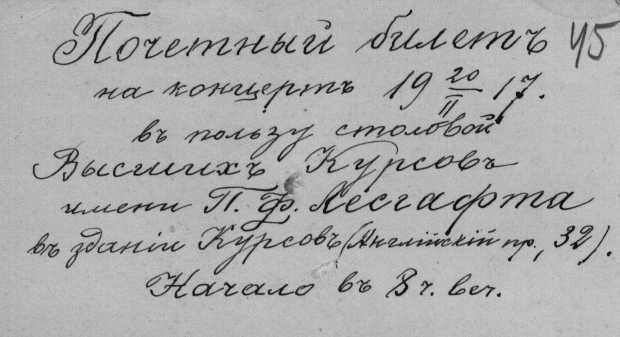 Почетный билетъ 45
на концертъ 19 20/II 17.
въ пользу столовой
Высшихъ Курсовъ
имени П. Ф. Лесгафта
въ зданіи Курсовъ (Англійскій пр., 32).
Начало въ 8 ч. веч.